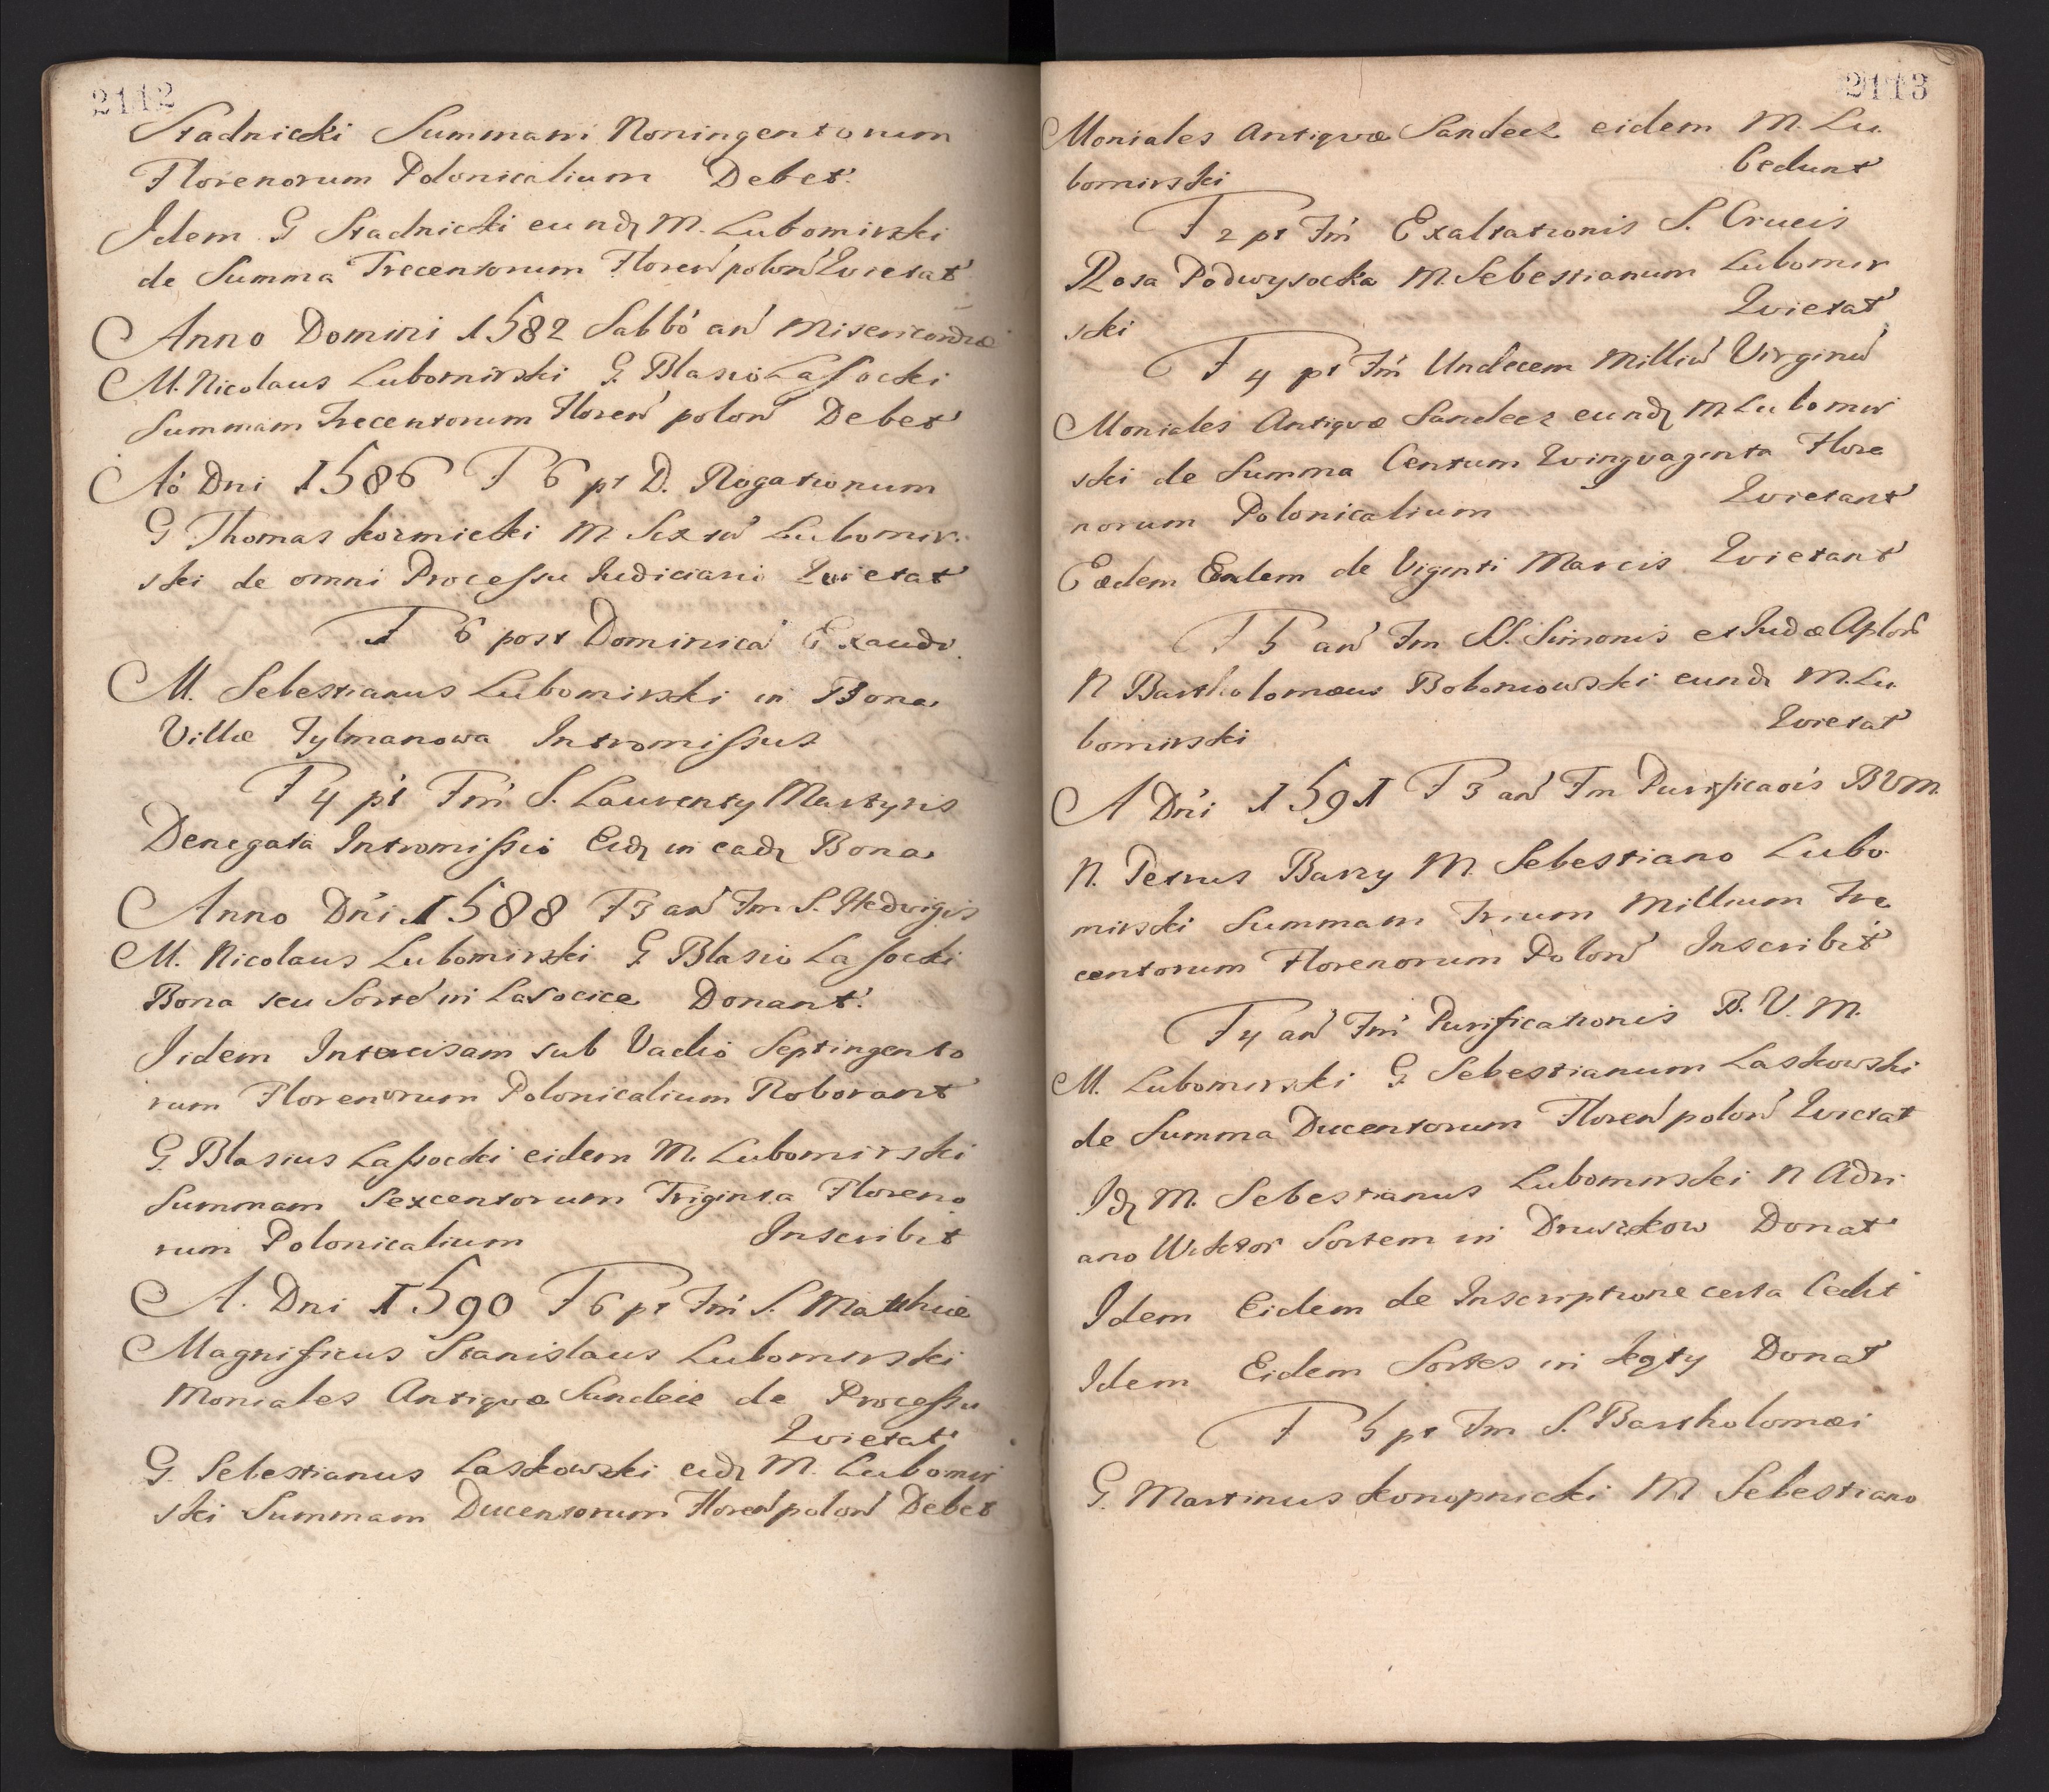 2112
Stadnicki Summam Noningentorum
Florenorum Polonicalium Debet.
Idem G Stadnicki eundȝ M. Lubomirski
de Summa Trecentorum Floren̄ polon̄ Qvietat
Anno Domini 1582 Sabbó an̄ Misericordiæ
M. Nicolaus Lubomirski G. Blasio Lassocki
Summam Trecentorum Floren̄ polon̄ Debet
Aó Dni 1586 F 6 pt D. Rogationum
G Thomas kormicki M Sextū Lubomir.
ski de omni Processu Iudiciario Qvietat
F 6 post Dominicā Exaudi
M. Sebestianus Lubomirski in Bona
Villæ Tylmanowa Intromissus
F 4 pt Fm̄ S. Laurenty Martyris
Denegata Intromissio Eidȝ in eadȝ Bona
Anno Dn̄i 1588 F 3 an̄ Fm S. Hedvigis
M. Nicolaus Lubomirski G. Blasio Lassocki
Bona seu Sortē in Lasocice Donant.
Iidem Intercisam sub Vadio Septingento
rum Florenorum Polonicalium Roborant
G. Blasius Lassocki eidem M. Lubomirski
Summam Sexcentorum Triginta Floreno
rum Polonicalium Inscribit
A. Dni 1590 F 6 pt Fm̄ S. Matthiæ
Magnificus Stanislaus Lubomirski
Moniales Antiqvæ Sandecz de Processu
Qvietat
G. Sebestianus Laskowski eidȝ M. Lubomir
ski Summam Ducentorum Floren̄ polon̄ Debet
2113
Moniales Antiqvæ Sandecz eidem M. Lu.
bomirski Cedunt
F 2 pt Fm̄ Exaltationis S. Crucis
Rosa Podwysocka M. Sebestianum Lubomir
ski Qvietat
F 4 pt Fm̄ Undecem Milliū Virginū
Moniales Antiqvæ Sandecz eundȝ M Lubomir
ski de Summa Centum Qvinqvaginta Flore
norum Polonicalium Qvietant
Eædem Eundem de Viginti Marcis Qvietant
F 5 an̄ Fm SS. Simonis et Iudæ Aplor̄
N Bartholomæus Boboniowski eundȝ M. Lu.
bomirski Qvietat
A Dn̄i 1591 F 3 an̄ Fm Purificaōis BVM.
N. Petrus Barzy M. Sebestiano Lubo.
mirski Summam Trium Millium Tre
centorum Florenorum Polon̄ Inscribit
F 4 an̄ Fm̄ Purificationis B. V. M.
M. Lubomirski G. Sebestianum Laskowski
de Summa Ducentorum Floren̄ polon̄ Qvietat
Idȝ M. Sebestianus Lubomirski N Adri
ano Wiktor Sortem in Druszkow Donat
Idem Eidem de Inscriptione certa Cedit
Idem Eidem Sortes in kąty Donat
F 5 pt Fm S. Bartholomæi
G. Martinus konopnicki M Sebestiano